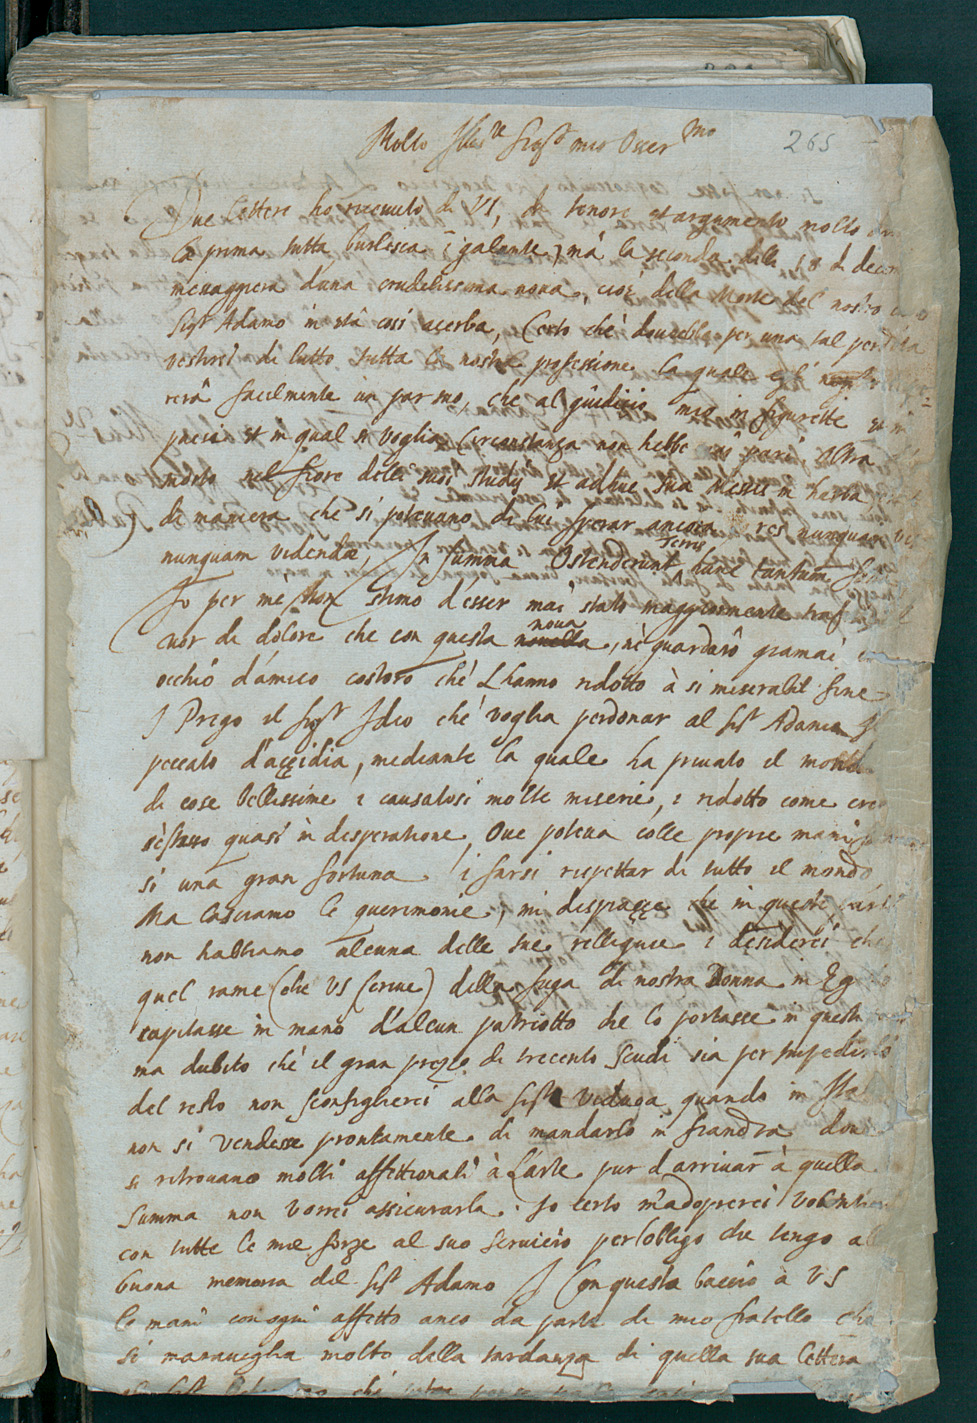 265
Molto Illus.re Sig.r mio Osser.mo
Due Lettere ho ricevuto di VS, di tenore et argumento molto
la prima tutta burlesca i galante, mà la seconda delli 18 di decem
menaggiera d'una crudelissima nova, cioè della Morte del nostro
Sig.r Adamo in età cosi acerba, Certo che doverebbe per una tal perdita
vestirsi di lutto tutta la nostra professione la quale
rerà facilmente un par suo, che al giudicio mio in figurette
paesi et in qual si voglia circonstanza non hebbe pari. Oltra
morto nel fiore delli suoi studij et adhuc sua messis in herba
di maniera che si potevano di lui sperar ancora res nunquam
nunquam videndae, In summa Ostenderunt terris hunc tantum
Io per me non stimo d'esser mai stato maggiormente
cuor di dolore che con questa novella nova, nè guardarò giamai
occhio d'amico costoro che l'hanno ridotto à si miserabil fine
Prego il Sig.r Idio che voglia perdonar al Sig.r Adamo
peccato d'accidia, mediante la quale ha privato il mondo
di cose bellissime i causatosi molte miserie, i ridotto come
sè stesso quasi in desperatione. Ove poteva colle proprie mani
si una gran fortuna i farsi rispettar di tutto il mondo
Ma lasciamo le querimonie, mi dispiacce che in queste parti
non habbiamo alcuna delle sue relliquie i desiderei che
quel rame (che VS scrive) della fuga di nostra Donna in Eg
capitasse in mano d'alcun patriotto che lo portasse in queste
ma dubito che il gran prezzo di trecento scudi sia per impedirlo
del resto non sconsiglierei alla Sig.ra Vedova quando in Ital
non si vendesse prontamente di mandarlo in Fiandra
si ritrovano molti affettionati à l'arte pur d'arrivar à quella
summa non vorrei assicurarla. Io certo m'adoprerei volentier
con tutte le mie forze al suo servicio per l'obligo che tengo al
buona memoria del Sig.r Adamo Con questa baccio a VS
le mani con ogni affetto anco da parte di mio fratello che
si maraveglia molto della tardanza di quella sua lettera